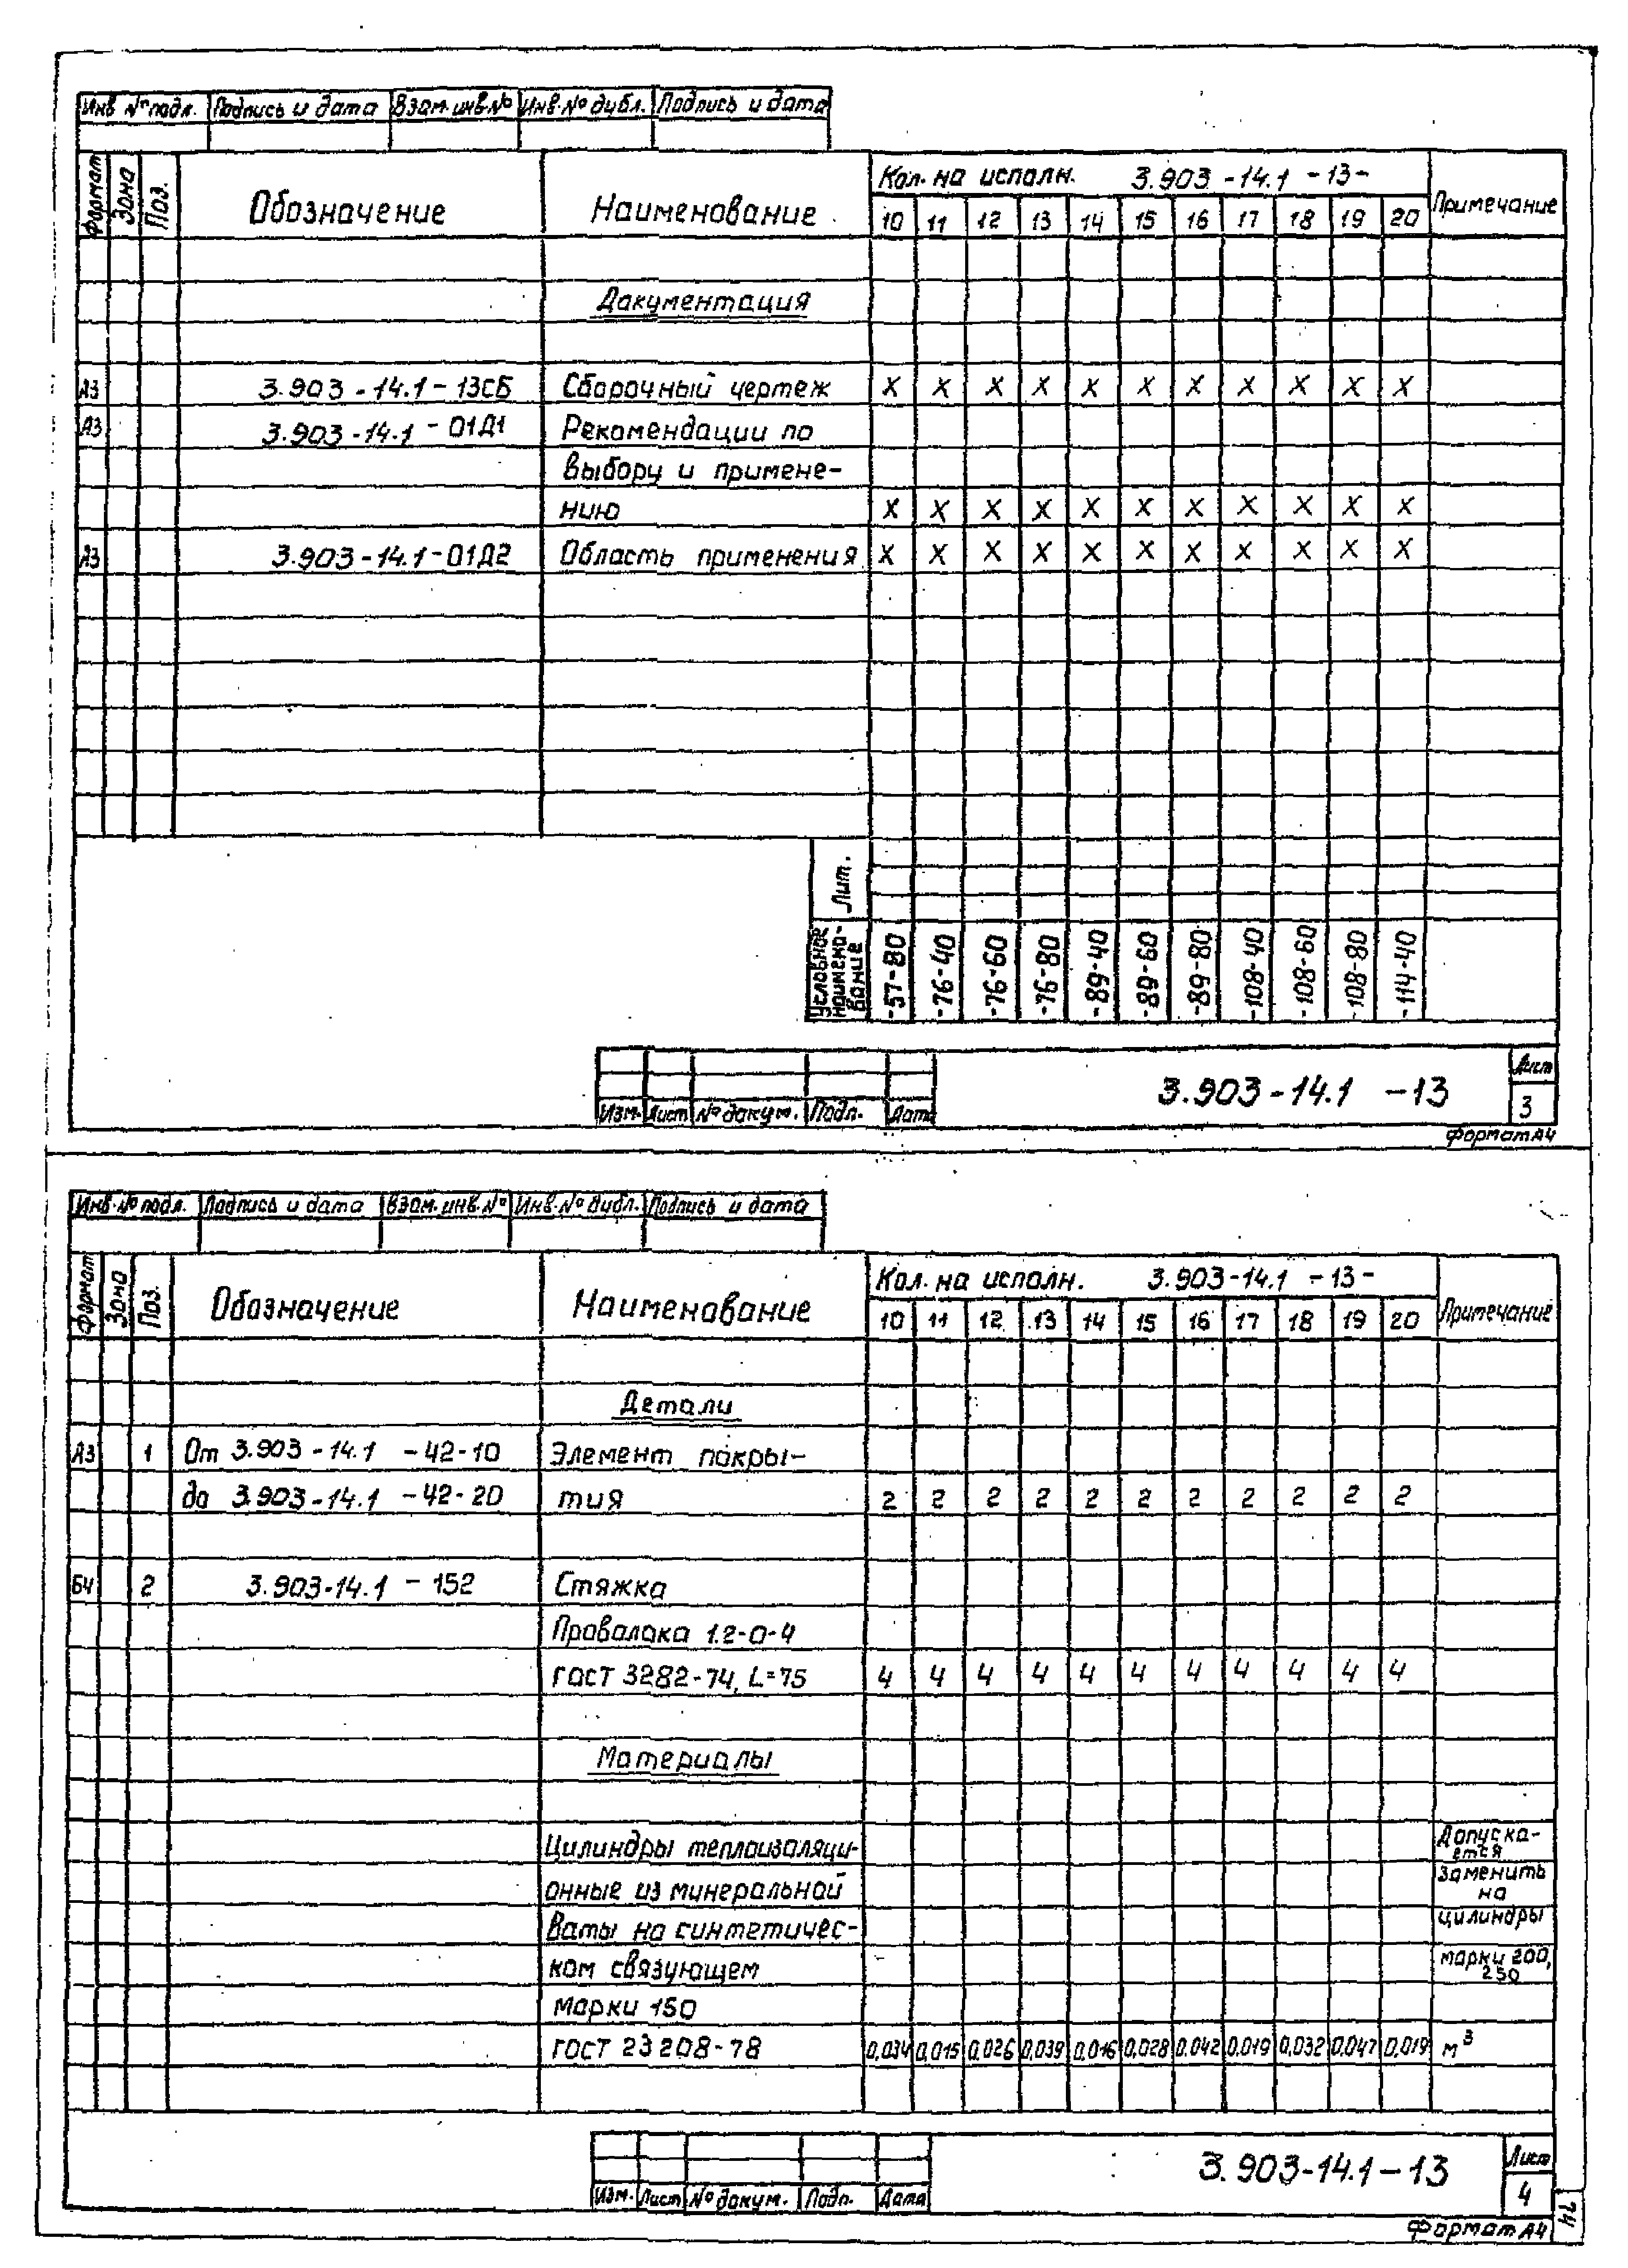 Инв № подл. Подпись и дата Взам. инв № Инв. № дубл. Подпись и дата
Формат Зона Поз. Обозначение Наименование Кол. на исполн. 3.903-14.1 -13- Примечание
10 11 12 13 14 15 16 17 18 19 20
Документация
А3 3.903-14.1-13СБ Сборочный чертеж X X X X X X X X X X X
А3 3.903-14.1-01Д1 Рекомендации по
выбору и примене-
нию X X X X X X X X X X X
А3 3.903-14.1-01Д2 Область применения X X X X X X X X X X X
Лит.
Условное наимено- вание -57-80 -76-40 -76-60 -76-80 -89-40 -89-60 -89-80 -108-40 -108-60 -108-80 -114-40
3.903-14.1 -13 Лист
Изм. Лист № докум. Подп. Дата 3
Формат А4
Инв. № подл. Подпись и дата Взам. инв. № Инв. № дубл. Подпись и дата
Формат Зона Поз. Обозначение Наименование Кол. на исполн. 3.903-14.1 -13- Примечание
10 11 12 13 14 15 16 17 18 19 20
Детали
А3 1 От 3.903-14.1 -42-10 Элемент покры-
до 3.903-14.1 -42-20 тия 2 2 2 2 2 2 2 2 2 2 2
БЧ 2 3.903-14.1 -152 Стяжка
Проволока 1.2-0-4
ГОСТ 3282-74, L=75 4 4 4 4 4 4 4 4 4 4 4
Материалы
Цилиндры теплоизоляци- Допуска-
ется
онные из минеральной заменить
на
ваты на синтетичес- цилиндры
ком связующем марки 200,
250
марки 150
ГОСТ 23208-78 0,034 0,015 0,026 0,039 0,016 0,028 0,042 0,019 0,032 0,047 0,019 м³
3.903-14.1-13 Лист
Изм. Лист № докум. Подп. Дата 4
Формат А4
74